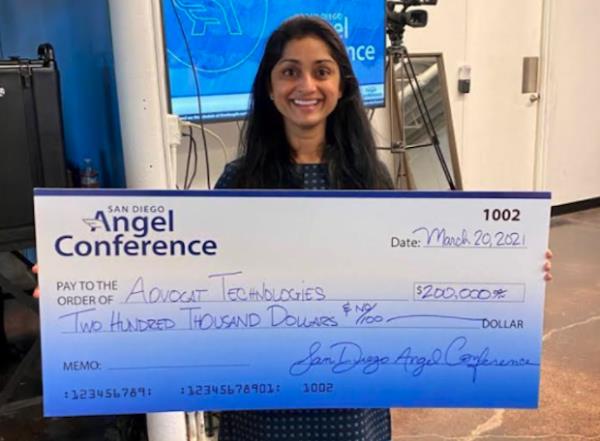 SAN DIEGO
Angel
Conference
SAN DIEGO
Angel
Conference
1002
Date: March 20, 2021
PAY TO THE
ORDER OF Advocat Technologies $200,000 00/xx
Two Hundred Thousand Dollars & No/100 DOLLAR
MEMO: San Diego Angel Conference
:123456789: :12345678901: 1002